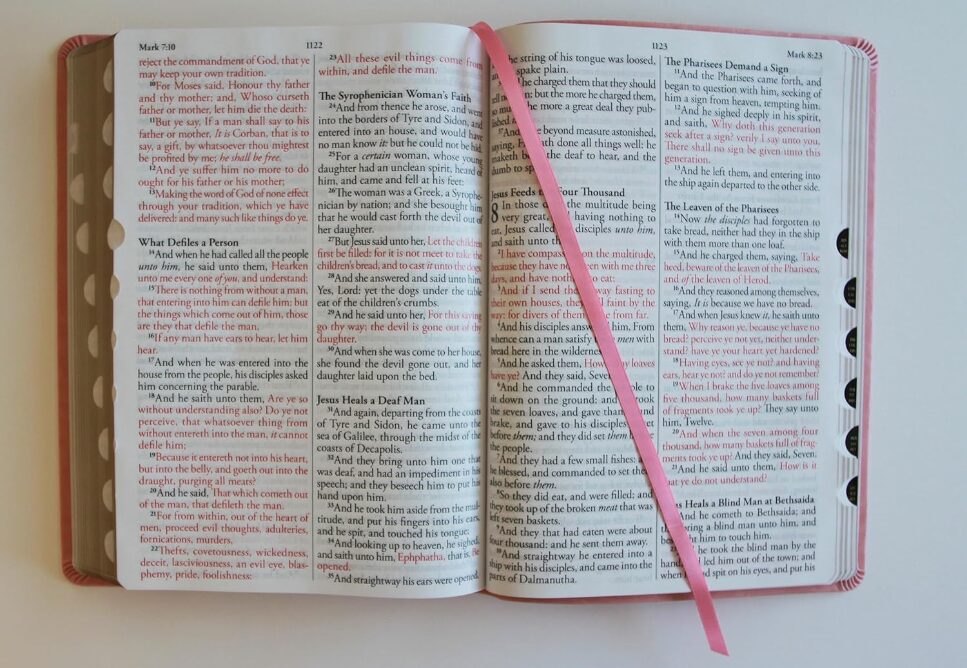 Mark 7:10
1122
reject the commandment of God, that ye
may keep your own tradition.
10For Moses said, Honour thy father
and thy mother; and, Whoso curseth
father or mother, let him die the death:
11But ye say, If a man shall say to his
father or mother, It is Corban, that is to
say, a gift, by whatsoever thou mightest
be profited by me; he shall be free.
12And ye suffer him no more to do
ought for his father or his mother;
13Making the word of God of none effect
through your tradition, which ye have
delivered: and many such like things do ye.
What Defiles a Person
14And when he had called all the people
unto him, he said unto them, Hearken
unto me every one of you, and understand:
15There is nothing from without a man,
that entering into him can defile him: but
the things which come out of him, those
are they that defile the man.
16If any man have ears to hear, let him
hear.
17And when he was entered into the
house from the people, his disciples asked
him concerning the parable.
18And he saith unto them, Are ye so
without understanding also? Do ye not
perceive, that whatsoever thing from
without entereth into the man, it cannot
defile him;
19Because it entereth not into his heart,
but into the belly, and goeth out into the
draught, purging all meats?
20And he said, That which cometh out
of the man, that defileth the man.
21For from within, out of the heart of
men, proceed evil thoughts, adulteries,
fornications, murders,
22Thefts, covetousness, wickedness,
deceit, lasciviousness, an evil eye, blas-
phemy, pride, foolishness:
23All these evil things come from
within, and defile the man.
The Syrophenician Woman's Faith
24And from thence he arose, and went
into the borders of Tyre and Sidon, and
entered into an house, and would have
no man know it: but he could not be hid.
25For a certain woman, whose young
daughter had an unclean spirit, heard of
him, and came and fell at his feet:
26The woman was a Greek, a Syrophe-
nician by nation; and she besought him
that he would cast forth the devil out of
her daughter.
27But Jesus said unto her, Let the children
first be filled: for it is not meet to take the
children's bread, and to cast it unto the dogs.
28And she answered and said unto him,
Yes, Lord: yet the dogs under the table
eat of the children's crumbs.
29And he said unto her, For this saying
go thy way; the devil is gone out of thy
daughter.
30And when she was come to her house,
she found the devil gone out, and her
daughter laid upon the bed.
Jesus Heals a Deaf Man
31And again, departing from the coasts
of Tyre and Sidon, he came unto the
sea of Galilee, through the midst of the
coasts of Decapolis.
32And they bring unto him one that
was deaf, and had an impediment in his
speech; and they beseech him to put his
hand upon him.
33And he took him aside from the mul-
titude, and put his fingers into his ears,
and he spit, and touched his tongue;
34And looking up to heaven, he sighed,
and saith unto him, Ephphatha, that is, Be
opened.
35And straightway his ears were opened,
1123
Mark 8:23
the string of his tongue was loosed,
spake plain.
he charged them that they should
tell no man: but the more he charged them,
so the more a great deal they pub-
lished
37And beyond measure astonished,
saying, hath done all things well: he
maketh the deaf to hear, and the
dumb to
Jesus Feeds Four Thousand
8 In those the multitude being
very great, having nothing to
eat, Jesus called disciples unto him,
and saith unto
2I have compassion the multitude,
because they have been with me three
days, and have nothing to eat:
3And if I send them away fasting to
their own houses, they will faint by the
way: for divers of them came from far.
4And his disciples answered him, From
whence can a man satisfy men with
bread here in the wilderness
5And he asked them, How many loaves
have ye? And they said, Seven
6And he commanded the people to
sit down on the ground: and took
the seven loaves, and gave thanks, and
brake, and gave to his disciples set
before them; and they did set them
the people.
7And they had a few small fishes: and
he blessed, and commanded to set them
also before them.
8So they did eat, and were filled: and
they took up of the broken meat that was
left seven baskets.
9And they that had eaten were about
four thousand: and he sent them away.
10And straightway he entered into a
ship with his disciples, and came into the
parts of Dalmanutha.
The Pharisees Demand a Sign
11And the Pharisees came forth, and
began to question with him, seeking of
him a sign from heaven, tempting him.
12And he sighed deeply in his spirit,
and saith, Why doth this generation
seek after a sign? verily I say unto you,
There shall no sign be given unto this
generation.
13And he left them, and entering into
the ship again departed to the other side.
The Leaven of the Pharisees
14Now the disciples had forgotten to
take bread, neither had they in the ship
with them more than one loaf.
15And he charged them, saying, Take
heed, beware of the leaven of the Pharisees,
and of the leaven of Herod.
16And they reasoned among themselves,
saying, It is because we have no bread.
17And when Jesus knew it, he saith unto
them, Why reason ye, because ye have no
bread? perceive ye not yet, neither under-
stand? have ye your heart yet hardened?
18Having eyes, see ye not? and having
ears, hear ye not? and do ye not remember?
19When I brake the five loaves among
five thousand, how many baskets full
of fragments took ye up? They say unto
him, Twelve.
20And when the seven among four
thousand, how many baskets full of frag-
ments took ye up? And they said, Seven.
21And he said unto them, How is it
that ye do not understand?
Jesus Heals a Blind Man at Bethsaida
And he cometh to Bethsaida; and
bring a blind man unto him, and
besought him to touch him.
he took the blind man by the
hand, led him out of the town; and
when he had spit on his eyes, and put his